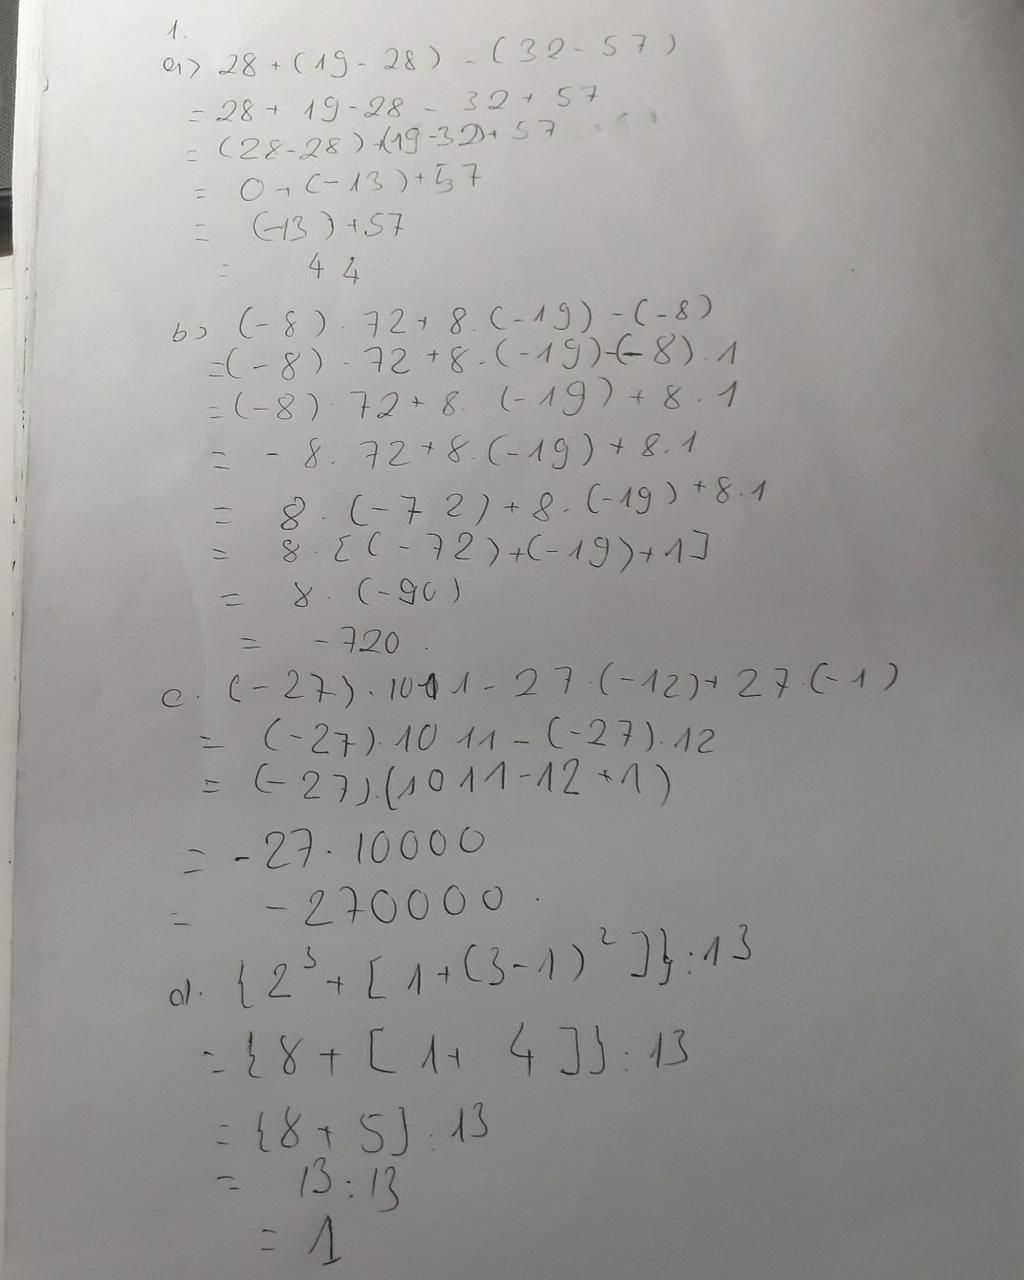 1.
a) 28 + (19 - 28) - (32 - 57)
= 28 + 19 - 28 - 32 + 57
= (28 - 28) + (19 - 32) + 57
= 0 + (-13) + 57
= (-13) + 57
= 44
b) (-8) . 72 + 8 . (-19) - (-8)
= (-8) . 72 + 8 . (-19) - (-8) . 1
= (-8) . 72 + 8 . (-19) + 8 . 1
= - 8 . 72 + 8 . (-19) + 8 . 1
= 8 . (-72) + 8 . (-19) + 8 . 1
= 8 . [(-72) + (-19) + 1]
= 8 . (-90)
= -720
c. (-27) . 1011 - 27 . (-12) + 27 . (-1)
= (-27) . 1011 - (-27) . 12
= (-27) . (1011 - 12 + 1)
= -27 . 10000
= -270000
d. {2³ + [1 + (3 - 1)²]} : 13
= {8 + [1 + 4]} : 13
= {8 + 5} : 13
= 13 : 13
= 1